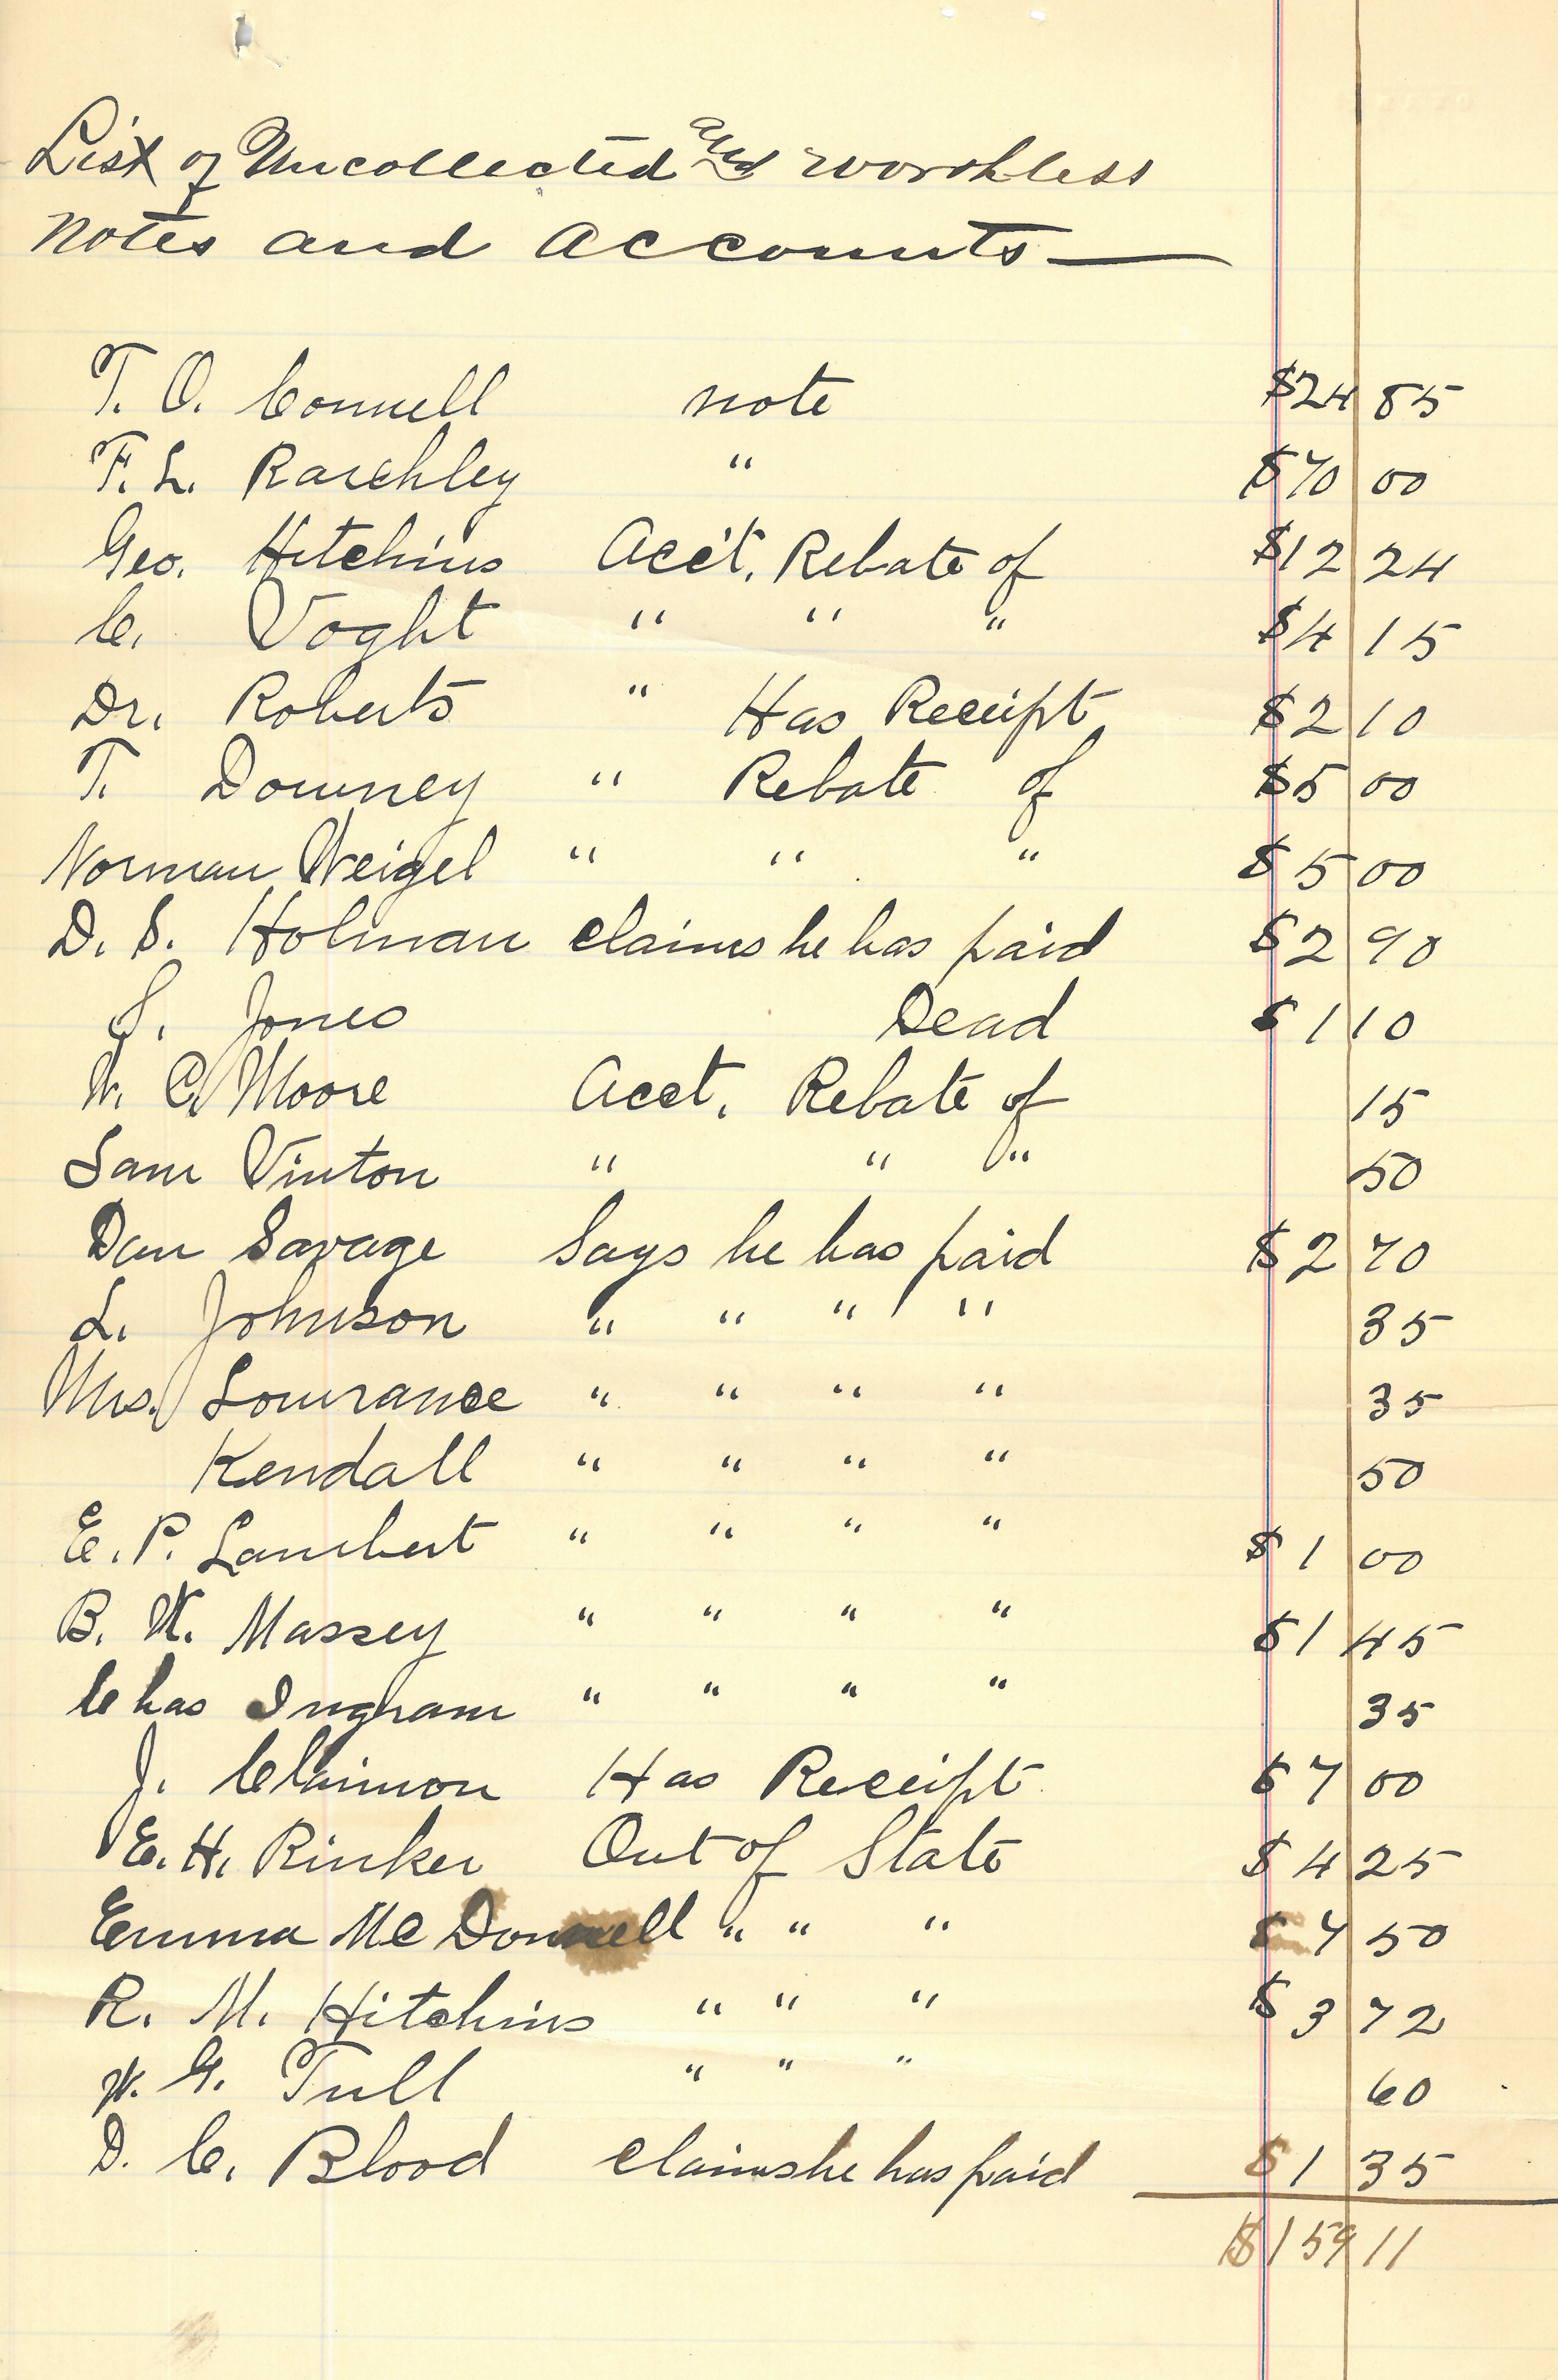 List of Uncollected and worthless
Notes and Accounts
T. O. Connell note $24 85
F. L. " $70 00
Geo. Hitchins Acc't. Rebate of $12 24
C. Voght " " " $4 15
Dr. Roberts " Has Receipt $2 10
T. Downey " Rebate of $5 00
Norman Weigel " " " $5 00
D. S. Holman claims he has paid $2 90
S. Jones Dead $1 10
W. C. Moore Acct. Rebate of 15
Sam Vinton " " " 50
Dan Savage Says he has paid $2 70
L. Johnson " " " " 35
Mrs. Lowrance " " " " 35
Kendall " " " " 50
E. P. Lambert " " " " $1 00
B. W. Massey " " " " $1 45
Chas Ingram " " " " 35
J. Has Receipt $7 00
E. H. Rinker Out of State $4 25
Emma McDonnell " " " $7 50
R. M. Hitchins " " " $3 72
W. G. Tull " " " 60
D. C. Blood claims he has paid $1 35
$159 11